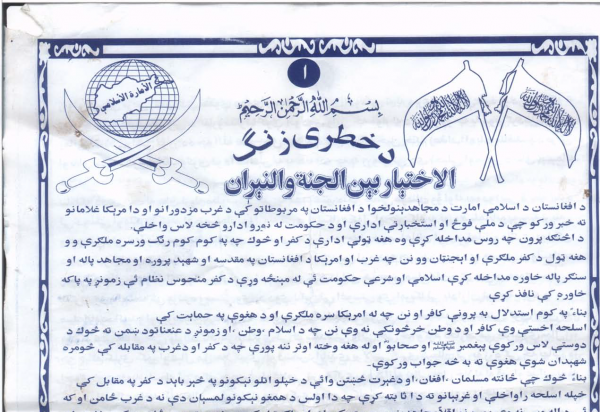 ۱
الامارة الاسلامي
بِسْمِ اللهِ الرَّحْمٰنِ الرَّحِيْمِ
د خطری زنګ
الاختیار بین الجنة والنیران
د افغانستان د اسلامي امارت د مجاهدینولخوا د افغانستان په مربوطاتو کې د غرب مزدورانو او د امریکا غلامانو
ته خبر ورکوو چې د ملي فوځ او استخباراتي ادارو او د حکومت له نورو ادارو څخه لاس واخلي.
د اځکه پرون چه روس مداخله کړې وه هغه ټولې ادارې د کفر او څوک چه په کوم کوم رنګ ورسره ملګرې وو
هغه ټول د کفر ملګرې او ایجنټان وو نن چه غرب او امریکا د افغانستان په مقدسه او شهید پروره او مجاهد پاله او
سنګر پاله خاوره مداخله کړې اسلامي او شرعي حکومت ئې له مینځه وړې د کفر منحوس نظام ئې زمونږ په پاکه
خاوره کې نافذ کړې
بناءً په کوم استدلال په پرونې کافر او نن چه له امریکا سره ملګرې او د هغوې په حمایت کې
اسلحه اخستې وې کافر او د وطن خرڅونکې نه وې نن چه د اسلام ،وطن ،او زمونږ د عنعناتود ښمن ته څوک د
دوستې لاس ورکوې پیغمبر ﷺ او صحابو ؓ او له هغه وخته اوتر ننه پورې چه د کفر او غرب په مقابله کې څومره
شهیدان شوې هغوې ته به څه جواب ورکوې.
بناءً څوک چې ځانته مسلمان ،افغان،او دغیرت څښتن وائې د خپلو اتلو نیکونو په خبر باید د کفر په مقابل کې
خپله اسلحه راواخلې او غربیانو ته د ا ثابته کړې چه دا اولس د همغو نیکونو لمسیان دې نه د غرب غلامن او که